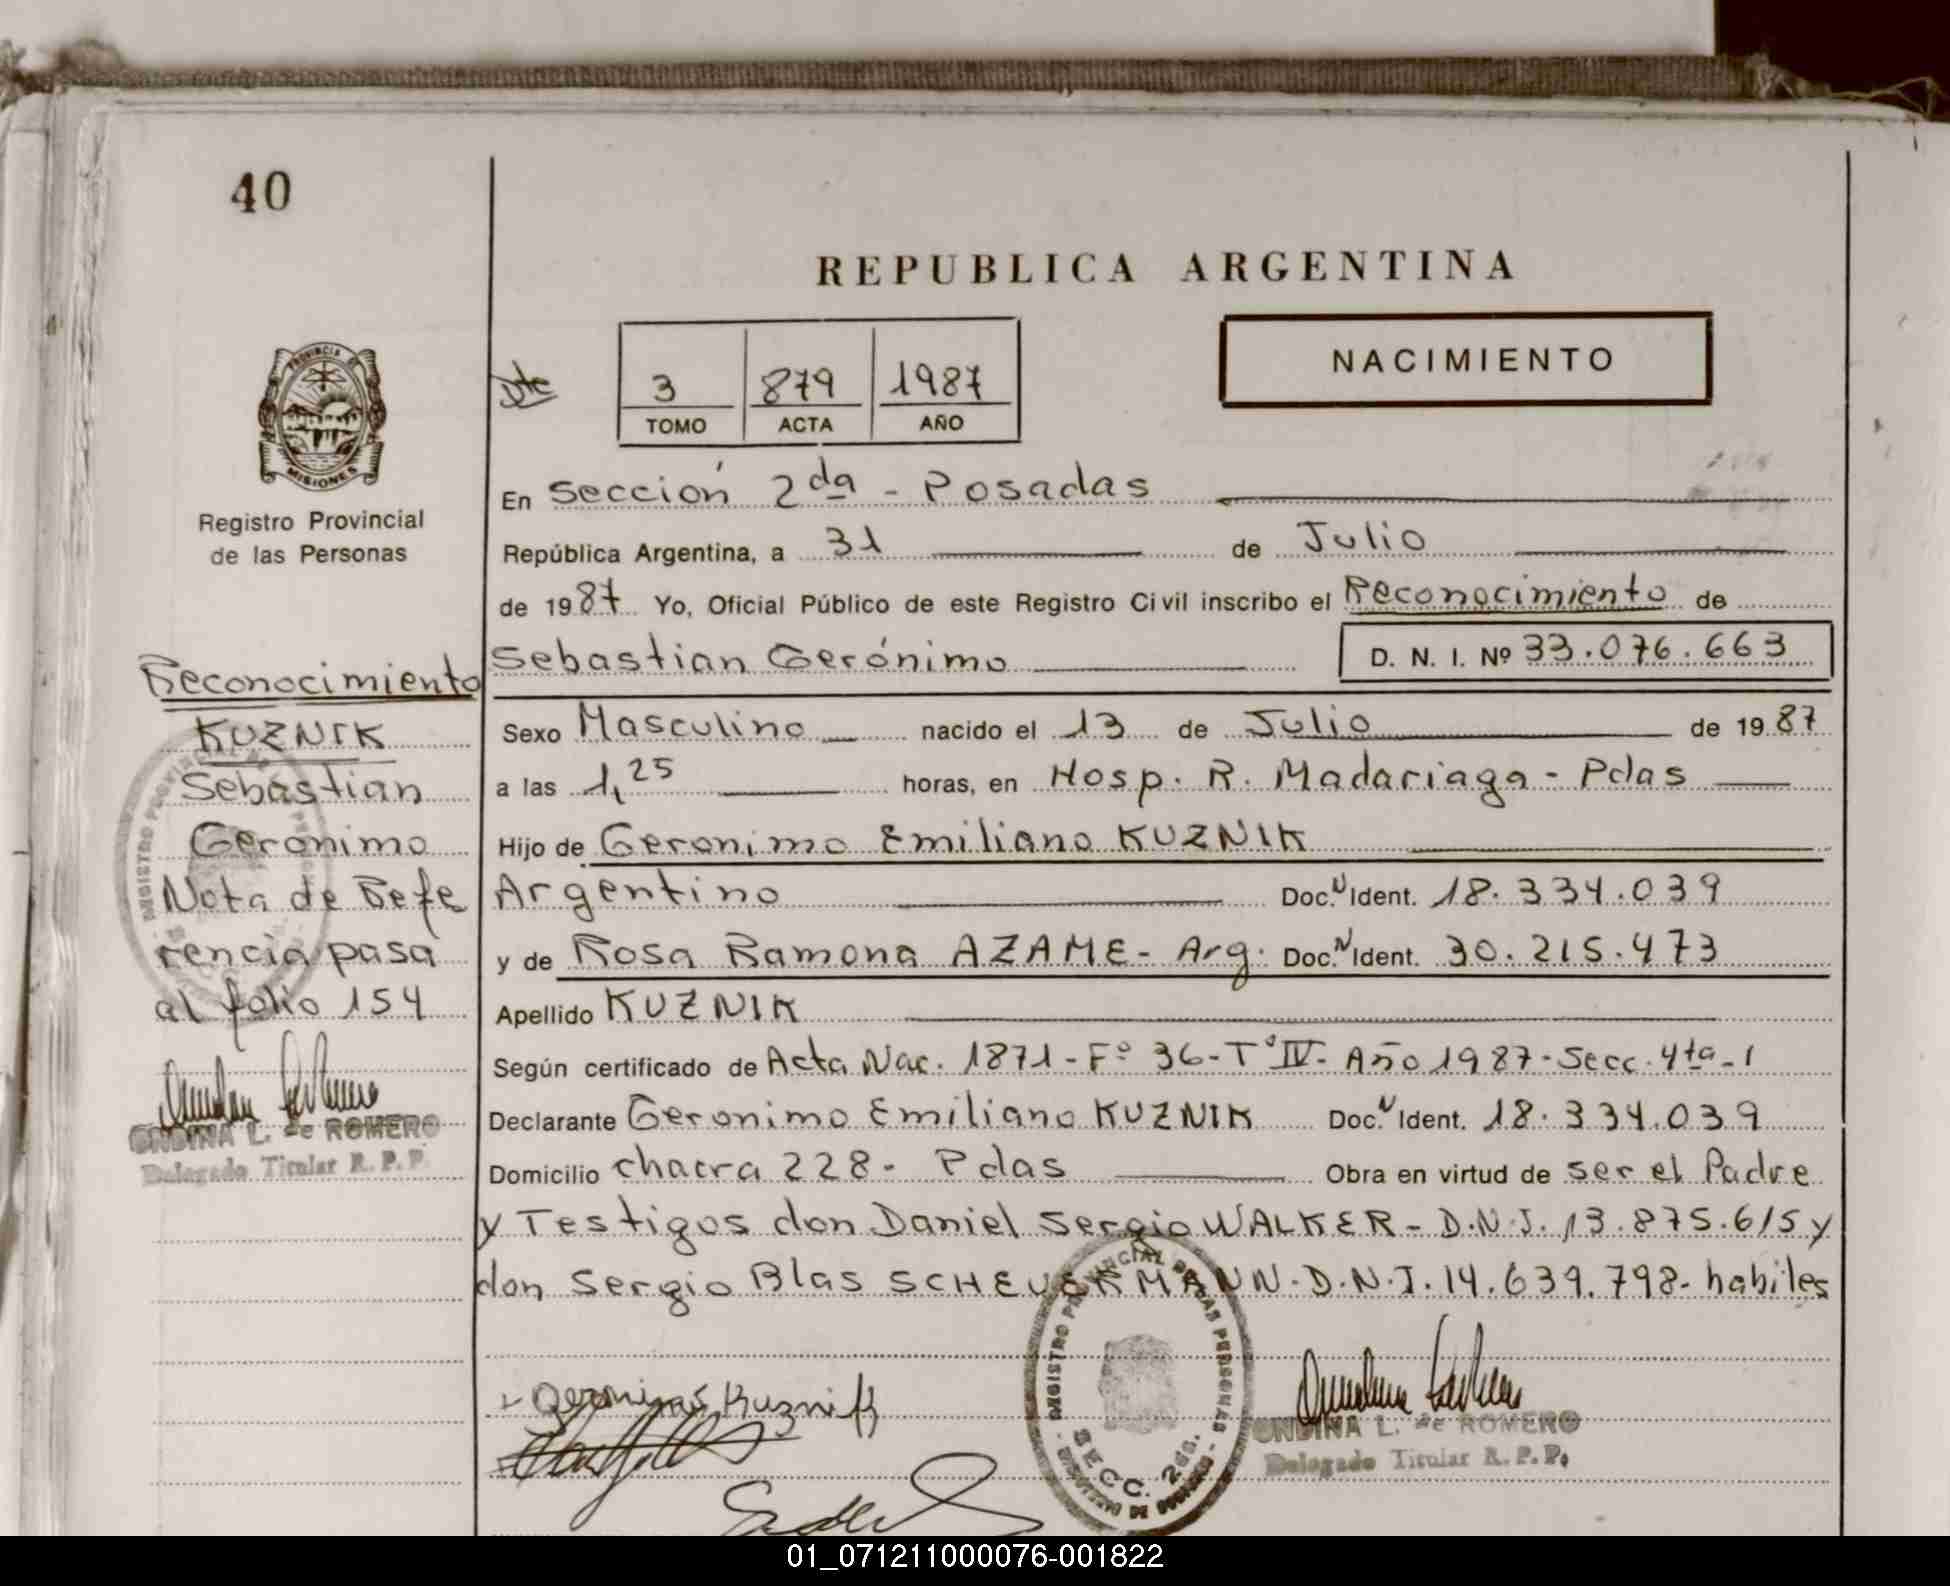 40
REPUBLICA ARGENTINA
NACIMIENTO
3 879 1987
TOMO ACTA AÑO
PROVINCIA DE
MISIONES
Registro Provincial
de las Personas
En Sección 2da - Posadas
República Argentina, a 31 de Julio
de 1987 Yo, Oficial Público de este Registro Civil inscribo el Reconocimiento de
Sebastian Gerónimo D. N. I. Nº 33.076.663
Sexo Masculino nacido el 13 de Julio de 1987
a las 1,25 horas, en Hosp. R. Madariaga - Pdas
Hijo de Geronimo Emiliano KUZNIK
Argentino Doc. N Ident. 18.334.039
y de Rosa Ramona AZAME - Arg. Doc. N Ident. 30.215.473
Apellido KUZNIK
Según certificado de Acta Nac. 1871 - Fº 36 - Tº IV - Año 1987 - Secc. 4ta - 1
Declarante Geronimo Emiliano KUZNIK Doc. N Ident. 18.334.039
Domicilio chacra 228 - Pdas Obra en virtud de ser el Padre
y Testigos don Daniel Sergio WALKER - D.N.I. 13.875.615 y
don Sergio Blas SCHEUERMANN. D.N.I. 14.639.798 - habiles
Reconocimiento
KUZNIK
Sebastian
Geronimo
Nota de Refe
rencia pasa
al folio 154
ONDINA L. de ROMERO
Delegado Titular R. P. P.
Geronimo Kuznik
REGISTRO PROVINCIAL DE LAS PERSONAS
SECC. 2da.
MINISTERIO DE GOBIERNO
ONDINA L. de ROMERO
Delegado Titular R. P. P.
01_071211000076-001822